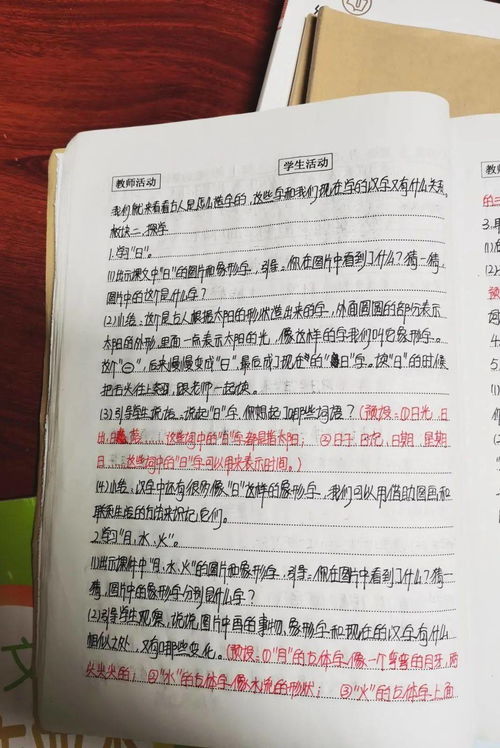 教师活动
学生活动
我们就来看看古人是怎么造字的，这些字和我们现在学的汉字又有什么关系。
板块二、探学
1.学习"日"。
(1)出示课文中"日"的图片和象形字，引导：你在图片中看到了什么?猜一猜，
图片中的这个是什么字?
(2)小结：这个是古人根据太阳的形状造出来的字，外面圆圆的部分表示
太阳的外形，里面一点表示太阳的光，像这样的字我们叫它象形字。
这个"⊖"，后来慢慢变成"日"，最后成了现在的"日"字。读"日"的时候
把舌尖往上翘，跟老师一起读。
(3)引导学生说话：说起"日"字，你想起了哪些词语?(预设：①日光、日
出、日落……这些词中的"日"字都是指太阳；②日子、日记、日期、星期
日……这些词中的"日"字可以用来表示时间。)
(4)小结：汉字中还有很多像"日"这样的象形字，我们可以用借助图画和
联系生活的方法来识记它们。
2.学习"月、水、火"。
(1)出示课件中"月、水、火"的图片和象形字，引导：你在图片中看到了什么?猜一
猜，图片中的象形字分别是什么字?
(2)引导学生观察，说说图片中画的事物、象形字和现在的汉字有什么
相似之处，又有哪些变化。(预设：①"月"的古体字像一个弯弯的月牙，两
头尖尖的；②"水"的古体字像水流的形状；③"火"的古体字上面
教
的三
3.
(1)
(2)
预
4.
5.
(1)